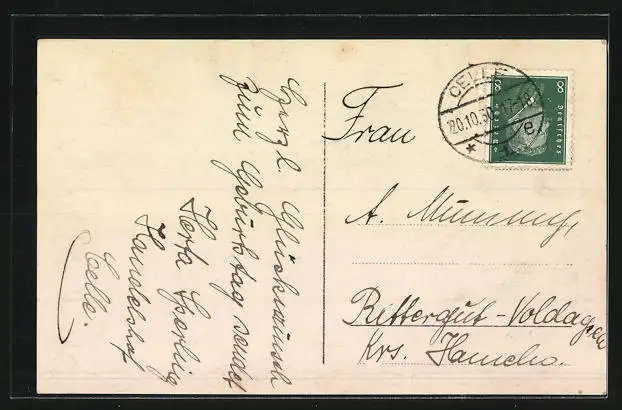 Herzl. Glückwunsch
zum Geburtstag sendet
Herta Sperling
Handelshof
Celle.
Frau
A. Mumsung,
Rittergut-Voldagsen
Krs. Hameln.
CELLE
20.10.30. 17-18
* e
8 8
Deutsches Reich